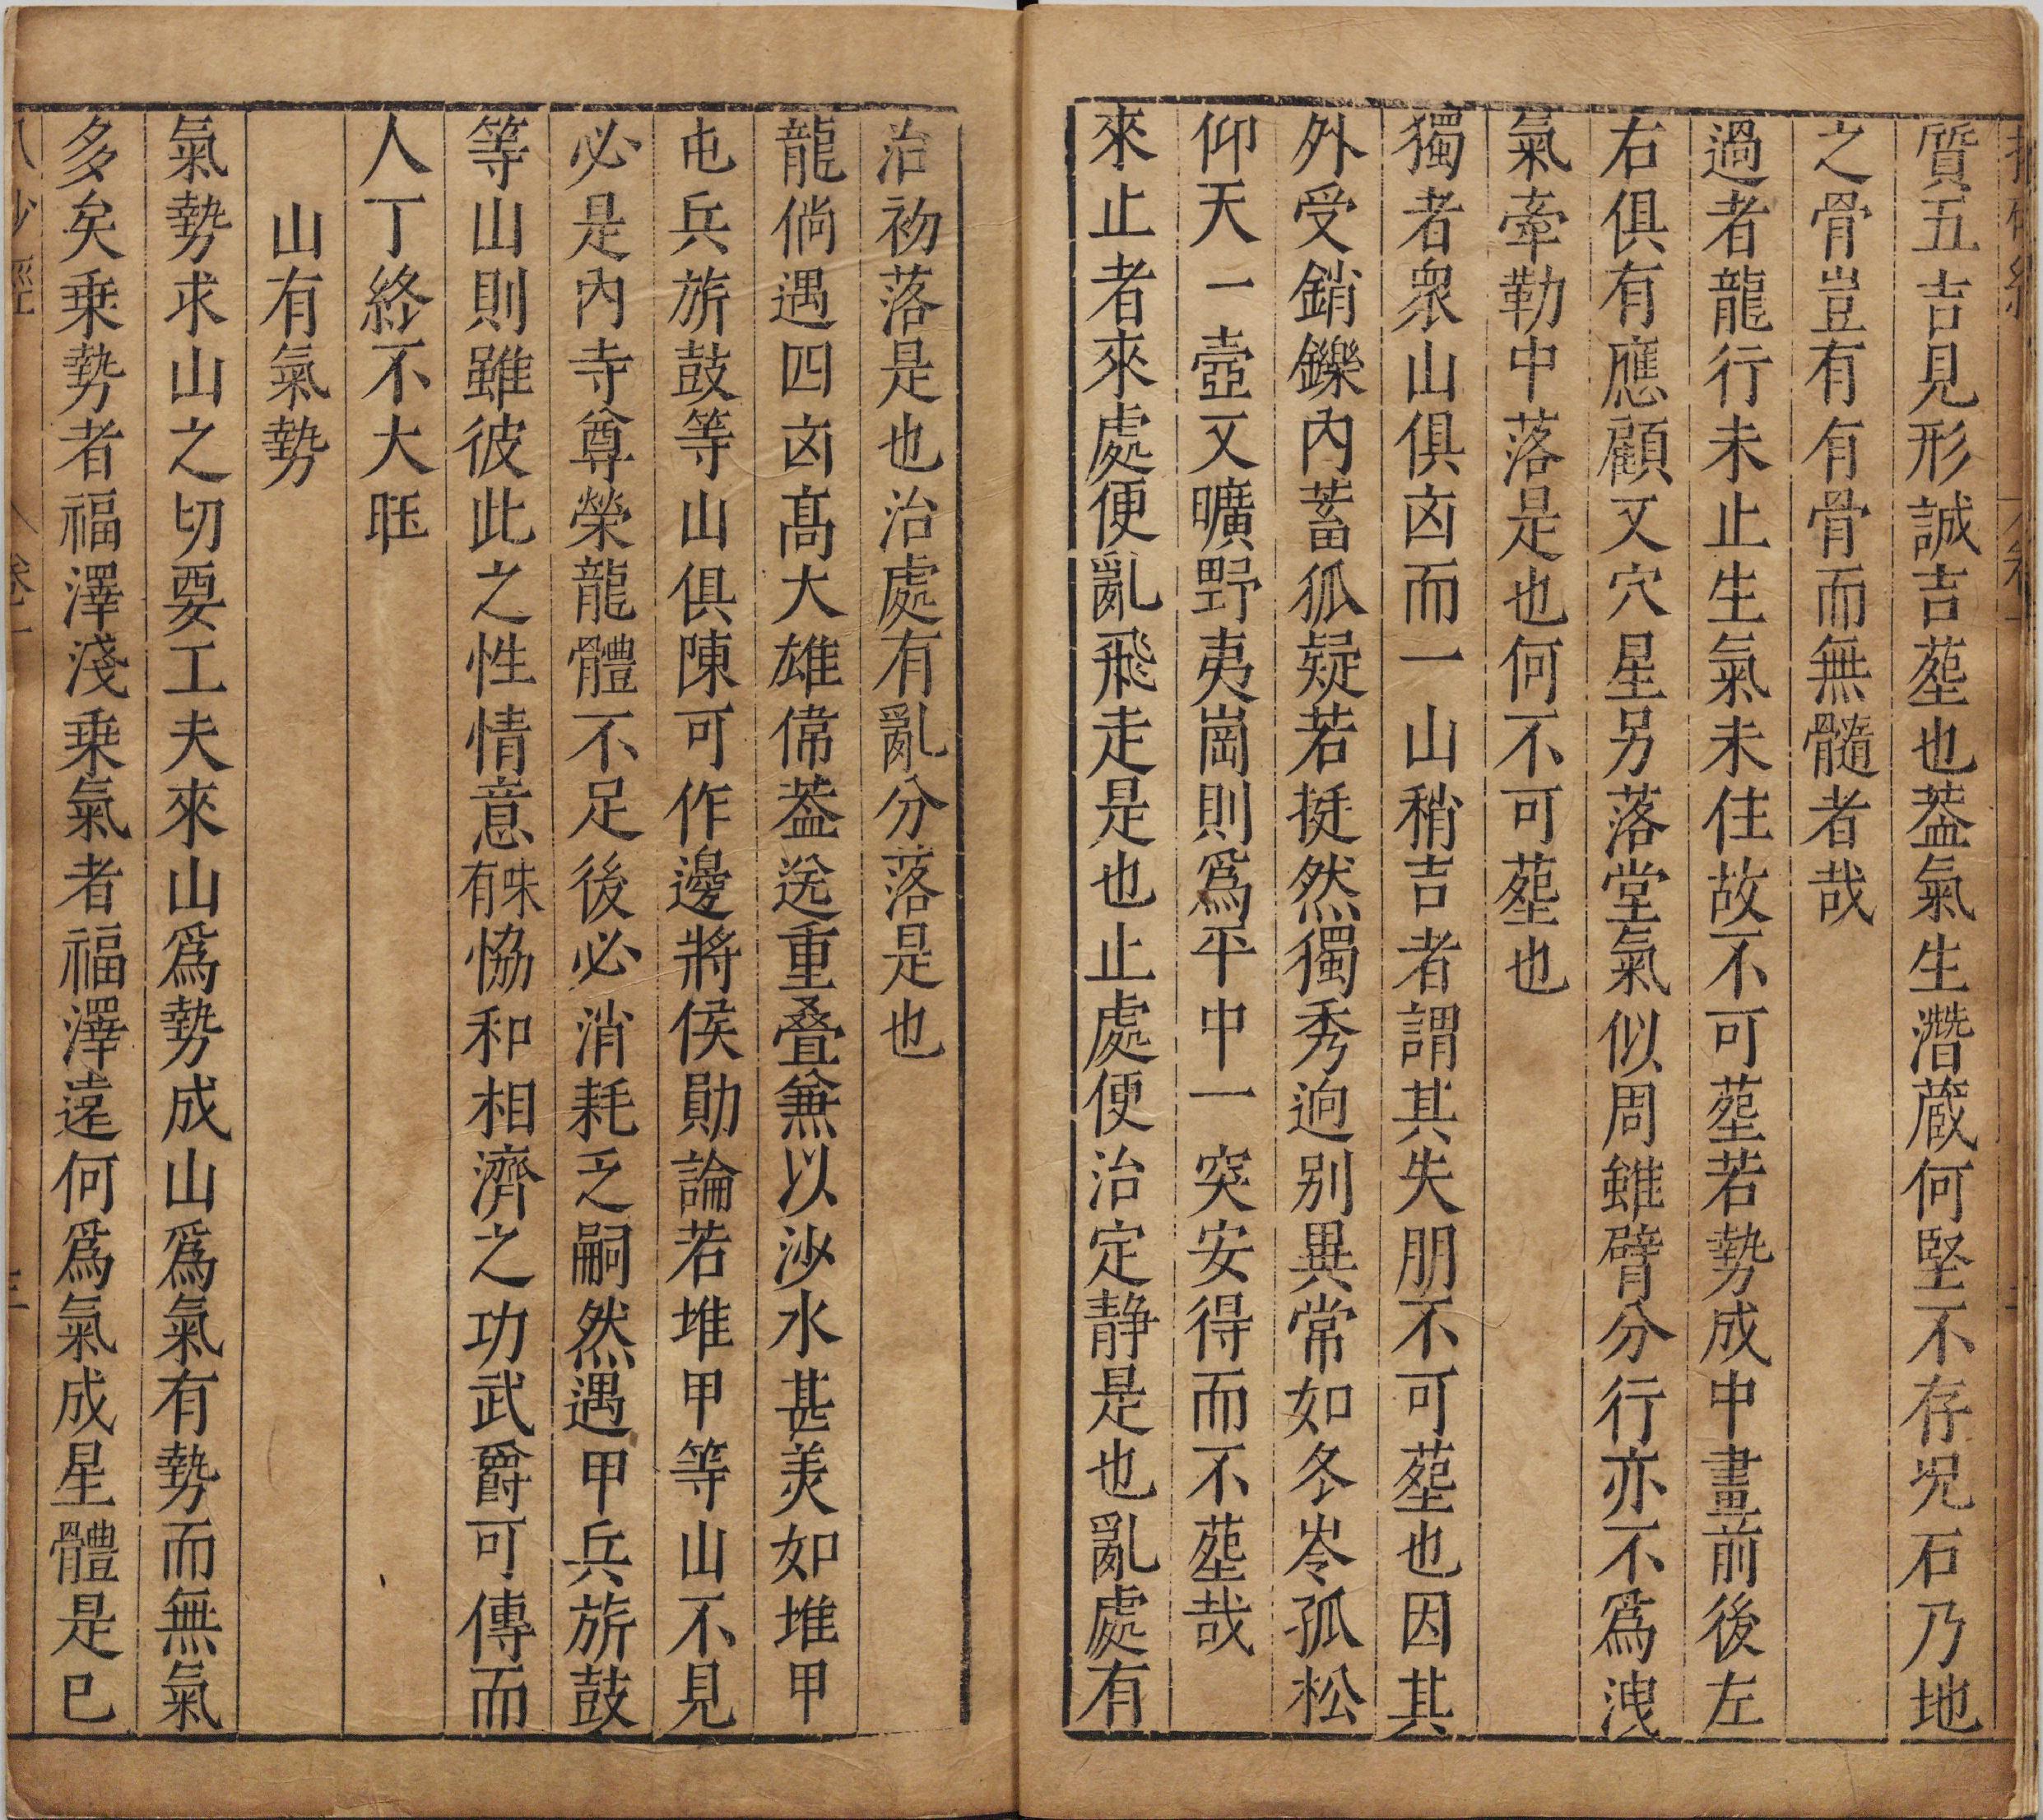 質五吉見形誠吉塟也葢氣生潛蔵何堅不存況石乃地
之骨豈有有骨而無髓者哉
過者龍行未止生氣未住故不可塟若勢成中畫前後左
右俱有應顧又穴星另落堂氣似周雖臂分行亦不爲洩
氣牽勒中落是也何不可塟也
獨者衆山俱㐫而一山稍吉者謂其失朋不可塟也因其
外受銷鑠內蓄狐疑若挺然獨秀逈别異常如冬岺孤松
仰天一壺又曠野夷崗則爲平中一突安得而不塟哉
來止者來處便亂飛走是也止處便治定静是也亂處有
治初落是也治處有亂分落是也
龍倘遇四㐫髙大雄偉葢送重疊兼以沙水甚美如堆甲
屯兵旂鼓等山俱陳可作邊將侯勛論若堆甲等山不見
必是內寺尊榮龍體不足後必消耗乏嗣然遇甲兵旂鼓
等山則雖彼此之性情意有味恊和相濟之功武爵可傳而
人丁終不大旺
山有氣勢
氣勢求山之切要工夫來山爲勢成山爲氣有勢而無氣
多矣乗勢者福澤淺乗氣者福澤遠何爲氣成星體是已